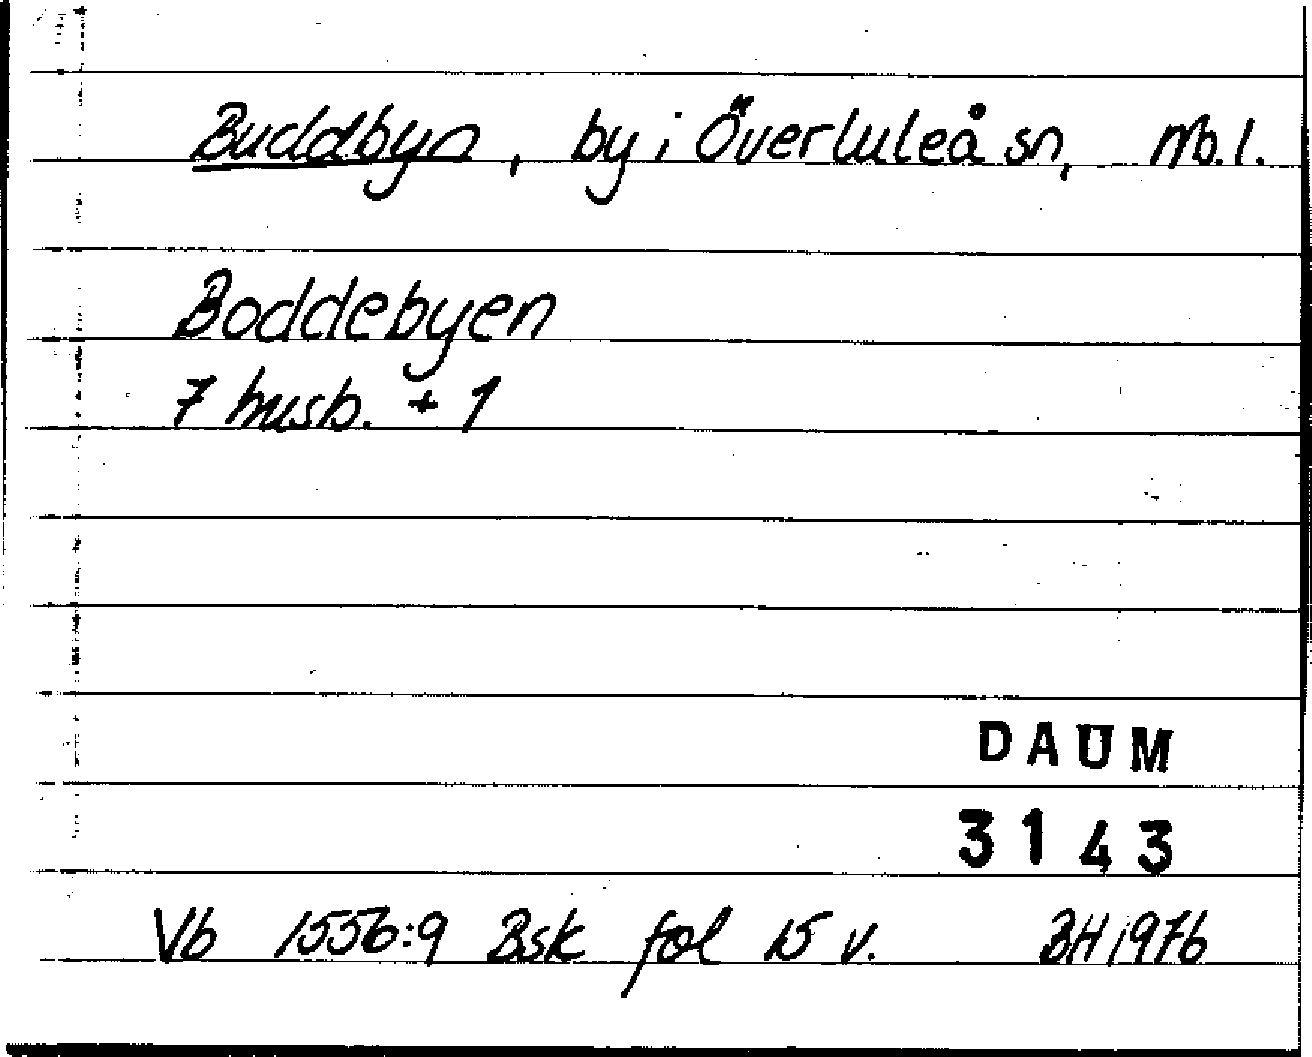 Buddbyn, by i Överluleå sn, Nb.l.
Boddebyen
7 husb. + 1
DAUM
3143
Vb 1556:9 Bsk fol 15 v. BH 1976